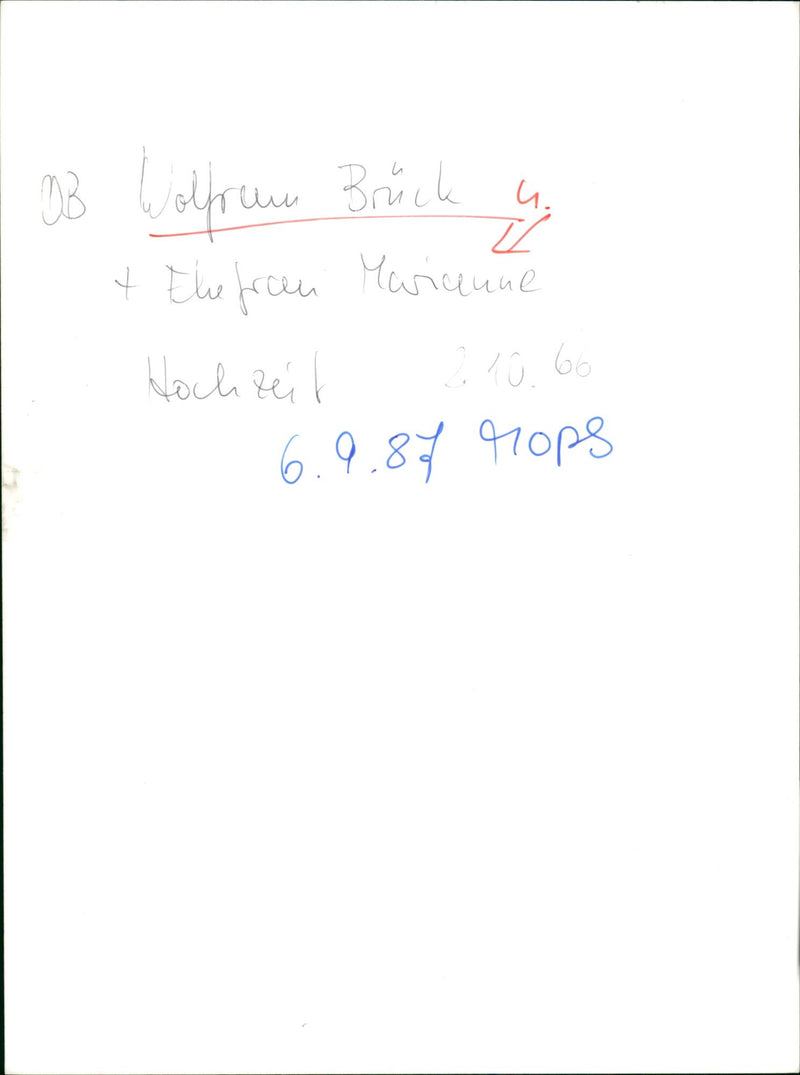 OB Wolfram Brück u.
+ Ehefrau Marianne
Hochzeit 2.10.66
6.9.87 Mops